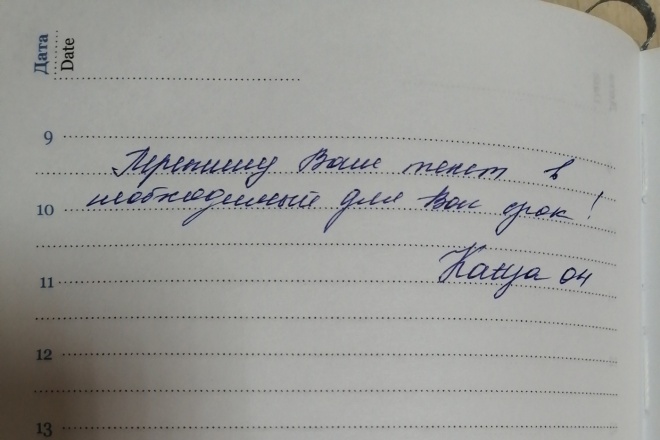 Дата
Date
9
Перепишу Ваш текст в
необходимый для Вас срок!
10
11
12
13